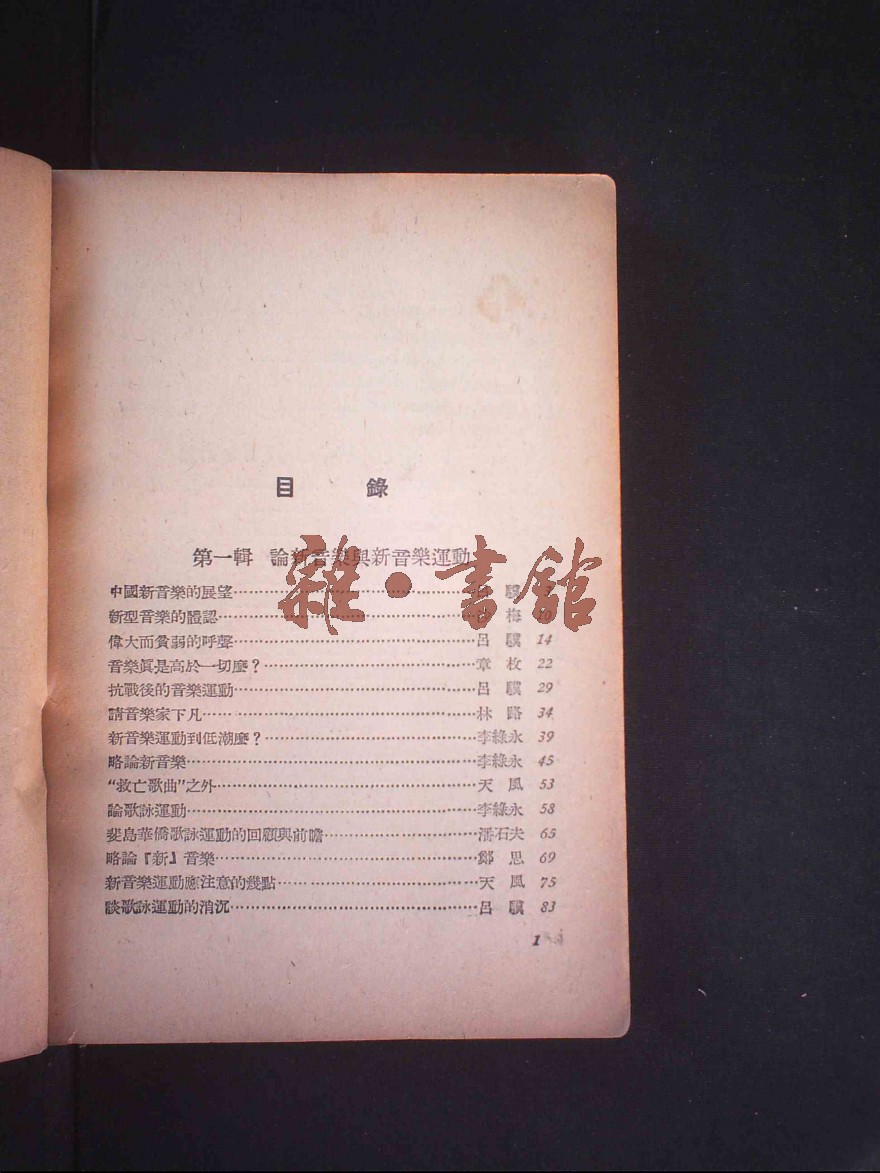 目 錄
第一輯 論新音樂與新音樂運動
中國新音樂的展望 呂 驥
新型音樂的體認 梅 10
偉大而貧弱的呼聲 呂 驥 14
音樂眞是高於一切麼？ 章 枚 22
抗戰後的音樂運動 呂 驥 29
請音樂家下凡 林 路 34
新音樂運動到低潮麼？ 李綠永 39
略論新音樂 李綠永 45
“救亡歌曲”之外 天 風 53
論歌詠運動 李綠永 58
斐島華僑歌詠運動的回顧與前瞻 潘石夫 65
略論『新』音樂 鄒 思 69
新音樂運動應注意的幾點 天 風 75
談歌詠運動的消沉 呂 驥 83
1
雜·書館